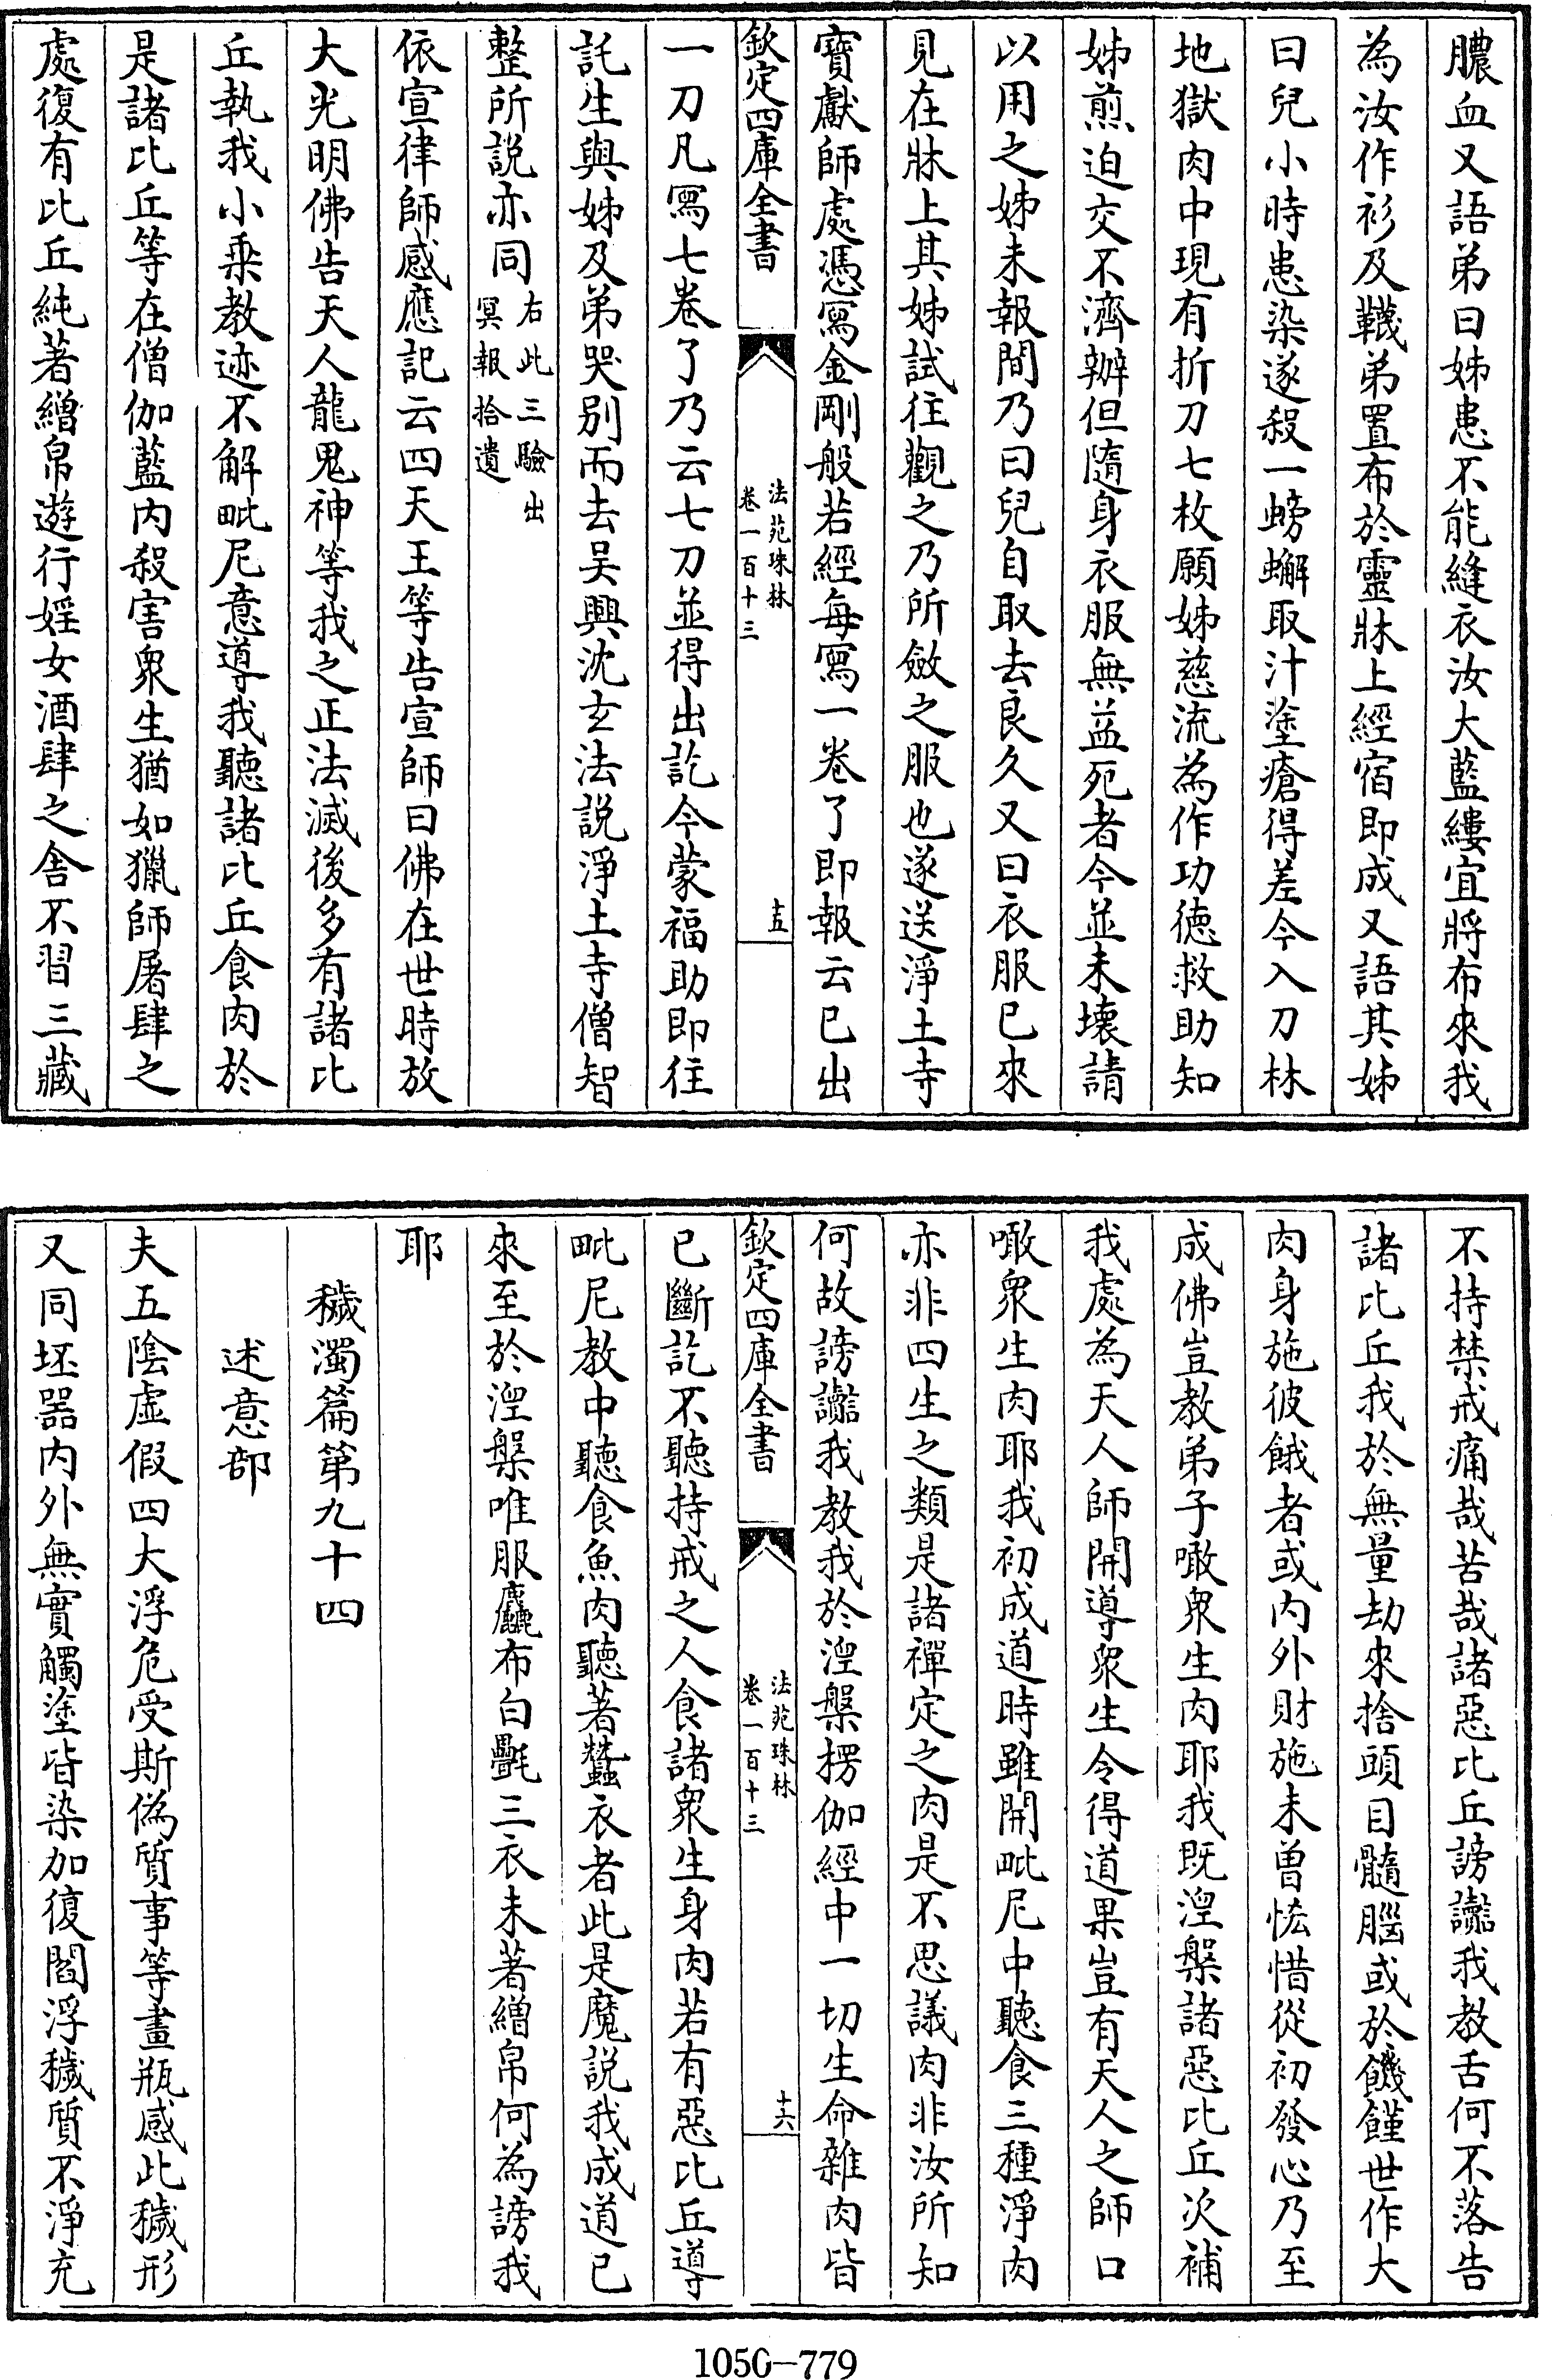 膿血又語弟曰姊患不能縫衣汝大藍縷宜將布來我
為汝作衫及韈弟置布於靈牀上經宿即成又語其姊
曰兒小時患染遂殺一螃蠏取汁塗瘡得差今入刀林
地獄肉中現有折刀七枚願姊慈流為作功徳救助知
姊煎迫交不濟辦但隨身衣服無益死者今並未壞請
以用之姊未報間乃曰兒自取去良久又曰衣服已來
見在牀上其姊試往觀之乃所斂之服也遂送淨土寺
寶獻師處憑寫金剛般若經每寫一卷了即報云已出
欽定四庫全書
法苑珠林
卷一百十三
十五
一刀凡寫七卷了乃云七刀並得出訖今蒙福助即往
託生與姊及弟哭别而去吴興沈玄法説淨土寺僧智
整所説亦同
右此三驗出
冥報拾遺
依宣律師感應記云四天王等告宣師曰佛在世時放
大光明佛告天人龍鬼神等我之正法滅後多有諸比
丘執我小乘教迹不解毗尼意導我聽諸比丘食肉於
是諸比丘等在僧伽藍内殺害衆生猶如獵師屠肆之
處復有比丘純著繒帛遊行婬女酒肆之舎不習三藏
不持禁戒痛哉苦哉諸惡比丘謗讟我教舌何不落告
諸比丘我於無量劫來捨頭目髓腦或於饑饉世作大
肉身施彼餓者或内外財施未曽恡惜從初發心乃至
成佛豈教弟子噉衆生肉耶我既湼槃諸惡比丘次補
我處為天人師開導衆生令得道果豈有天人之師口
噉衆生肉耶我初成道時雖開毗尼中聽食三種淨肉
亦非四生之類是諸禪定之肉是不思議肉非汝所知
何故謗讟我教我於湼槃楞伽經中一切生命雜肉皆
欽定四庫全書
法苑珠林
卷一百十三
十六
已斷訖不聽持戒之人食諸衆生身肉若有惡比丘導
毗尼教中聽食魚肉聽著蠶衣者此是魔説我成道已
來至於湼槃唯服麤布白㲲三衣未著繒帛何為謗我
耶
穢濁篇第九十四
述意部
夫五陰虚假四大浮危受斯偽質事等畫瓶感此穢形
又同坯器内外無實觸塗皆染加復閻浮穢質不淨充
1050-779